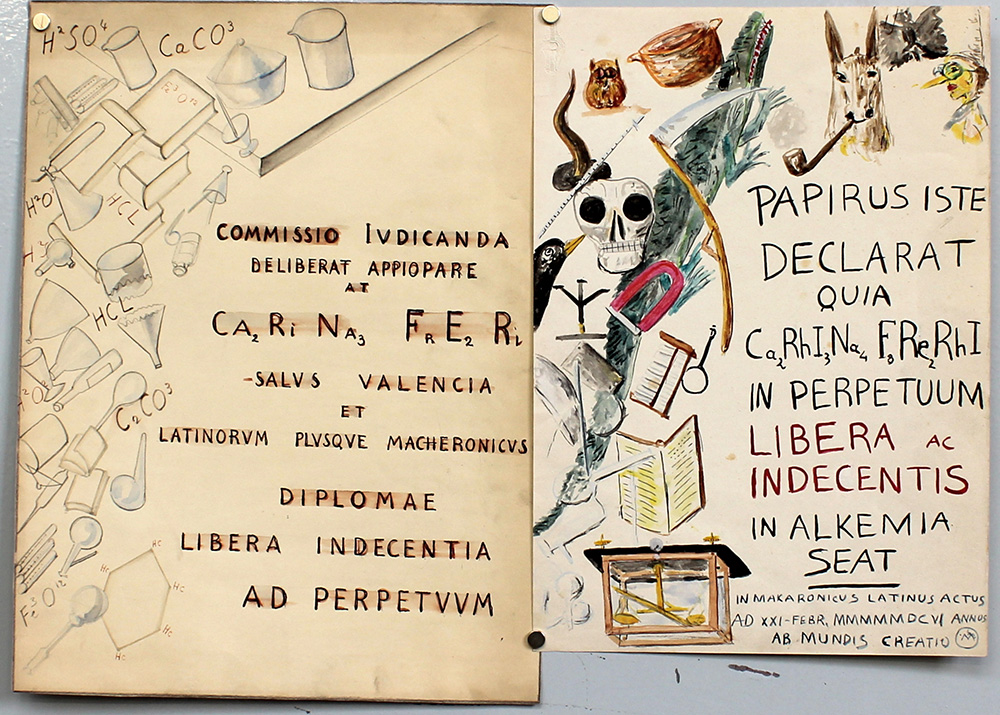 H²SO⁴ CaCO³
H²O
HCL
H³
HCL
H²O²
CaCO³
Fe³O¹²
HC
HC
HC
HC
COMMISSIO IVDICANDA
DELIBERAT APPIOPARE
AT
CA₂ Ri NA₃ FR E₂ Ri
-SALVS VALENCIA
ET
LATINORVM PLVSQVE MACHERONICVS
DIPLOMAE
LIBERA INDECENTIA
AD PERPETVVM
PAPIRUS ISTE
DECLARAT
QUIA
Ca₂RhI₃Na₄ F₈Re₂RhI
IN PERPETUUM
LIBERA AC
INDECENTIS
IN ALKEMIA
SEAT
IN MAKARONICUS LATINUS ACTUS
AD XXI-FEBR, MMMMMDCVI ANNUS
AB MUNDIS CREATIO